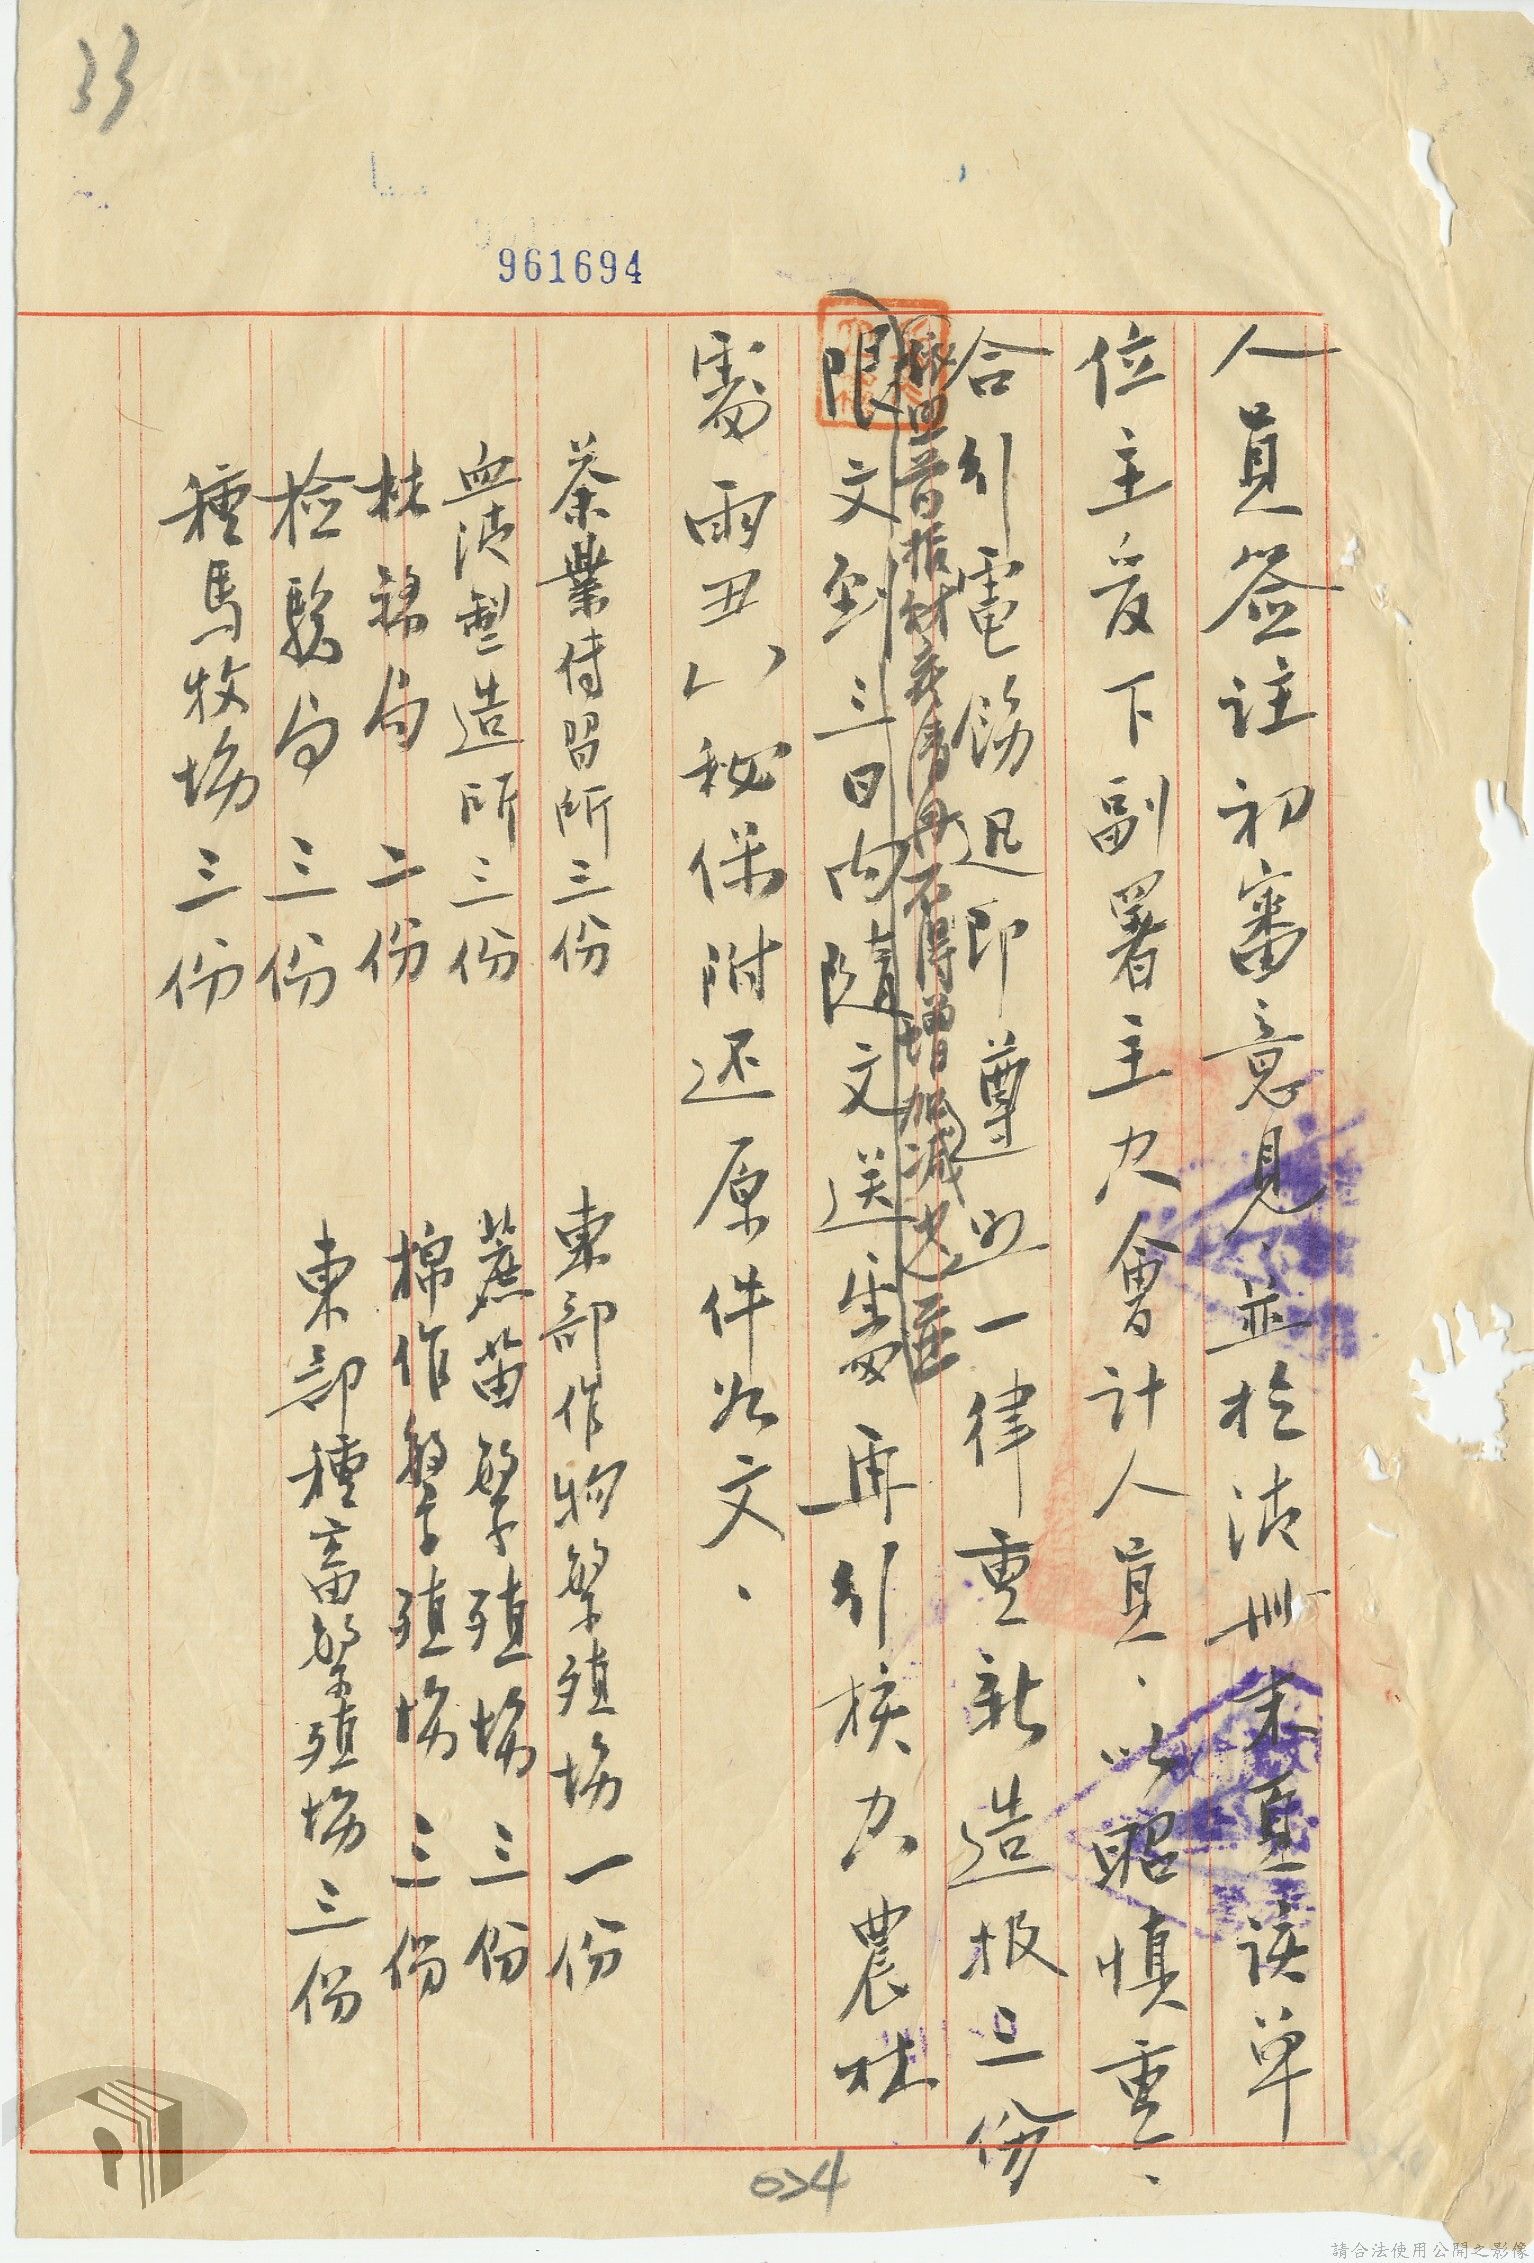 33
961694
人員簽註初審意見、並於清冊末頁該單
位主友下副署主办會計人員、以昭慎重、
合引電飭迅即遵照一律重新造报三份
不得增加減少並
限文到三日內隨文送署再引核办農林
署雨丑八秘保附还原件如文、
茶業傳習所三份
東部作物繁殖場一份
血清製造所三份
蔗苗繁殖場三份
林務局二份
棉作繁殖場三份
檢驗局三份
東部種畜繁殖場三份
種馬牧場三份
034
請合法使用公開之影像